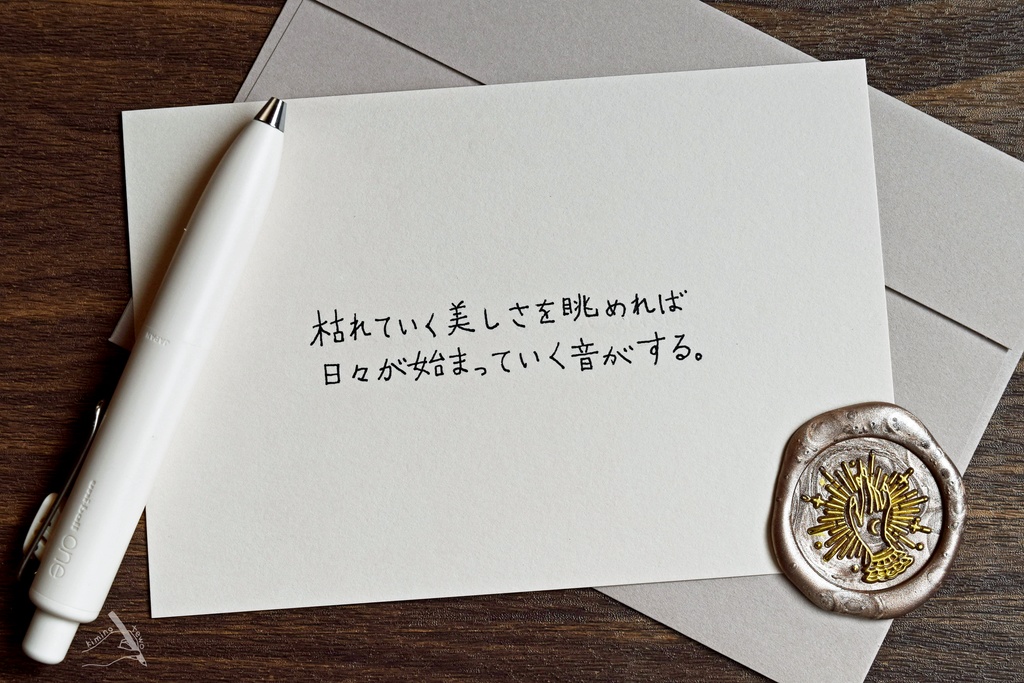 枯れていく美しさを眺めれば
日々が始まっていく音がする。
uni-ball one